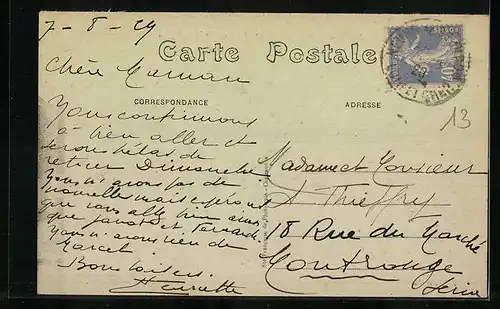 7-8-29
Carte Postale
Chère Maman
CORRESPONDANCE
ADRESSE
13
Nous continuons
à bien aller et
serons de
retour Dimanche
Nous n'avons pas de
nouvelle mais
que vous allez bien ainsi
que et
Nous n'avons rien de
Marcel
Bons baisers
Henriette
Madame et Monsieur
A Thieffry
18 Rue du Marché
Montrouge
Seine